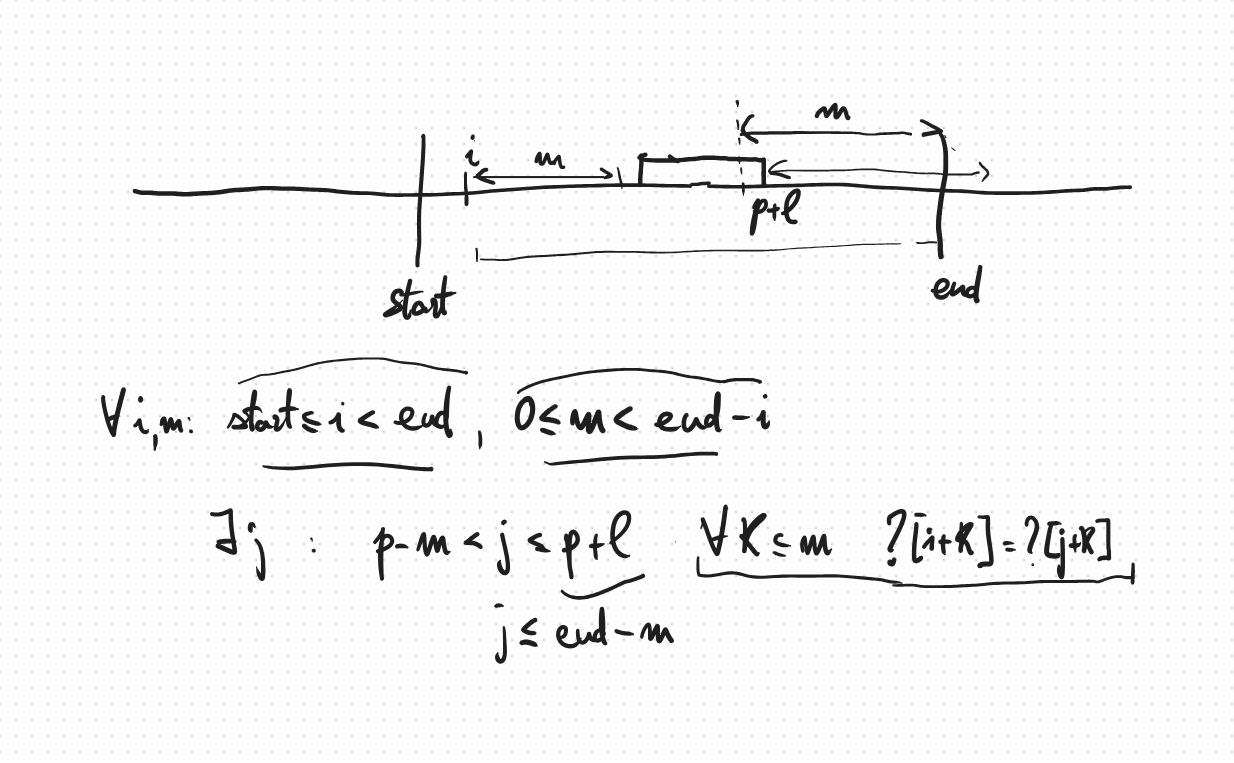 m
i m
p+l
start end
∀i,m: start ≤ i < end, 0 ≤ m < end - i
∃j : p-m < j ≤ p+l ∀K ≤ m ?[i+K] = ?[j+K]
j ≤ end - m